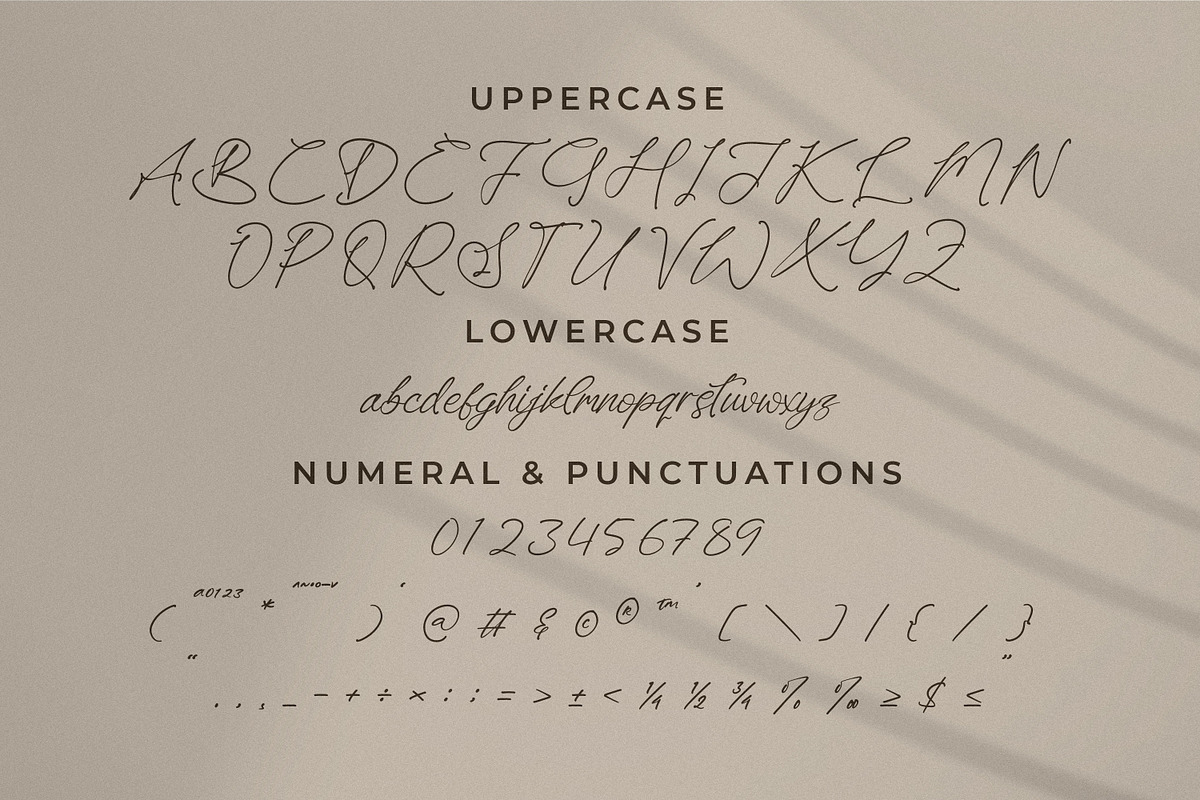 UPPERCASE
ABCDEFGHIJKLMN
OPQRSTUVWXYZ
LOWERCASE
abcdefghijklmnopqrstuvwxyz
NUMERAL & PUNCTUATIONS
0123456789
( a0123 * ) ‘ @ # & © ® ™ ’ [ \ ] | { / }
“ ”
. , ¸ _ − + ÷ × : ; = > ± < ¼ ½ ¾ % ‰ ≥ $ ≤